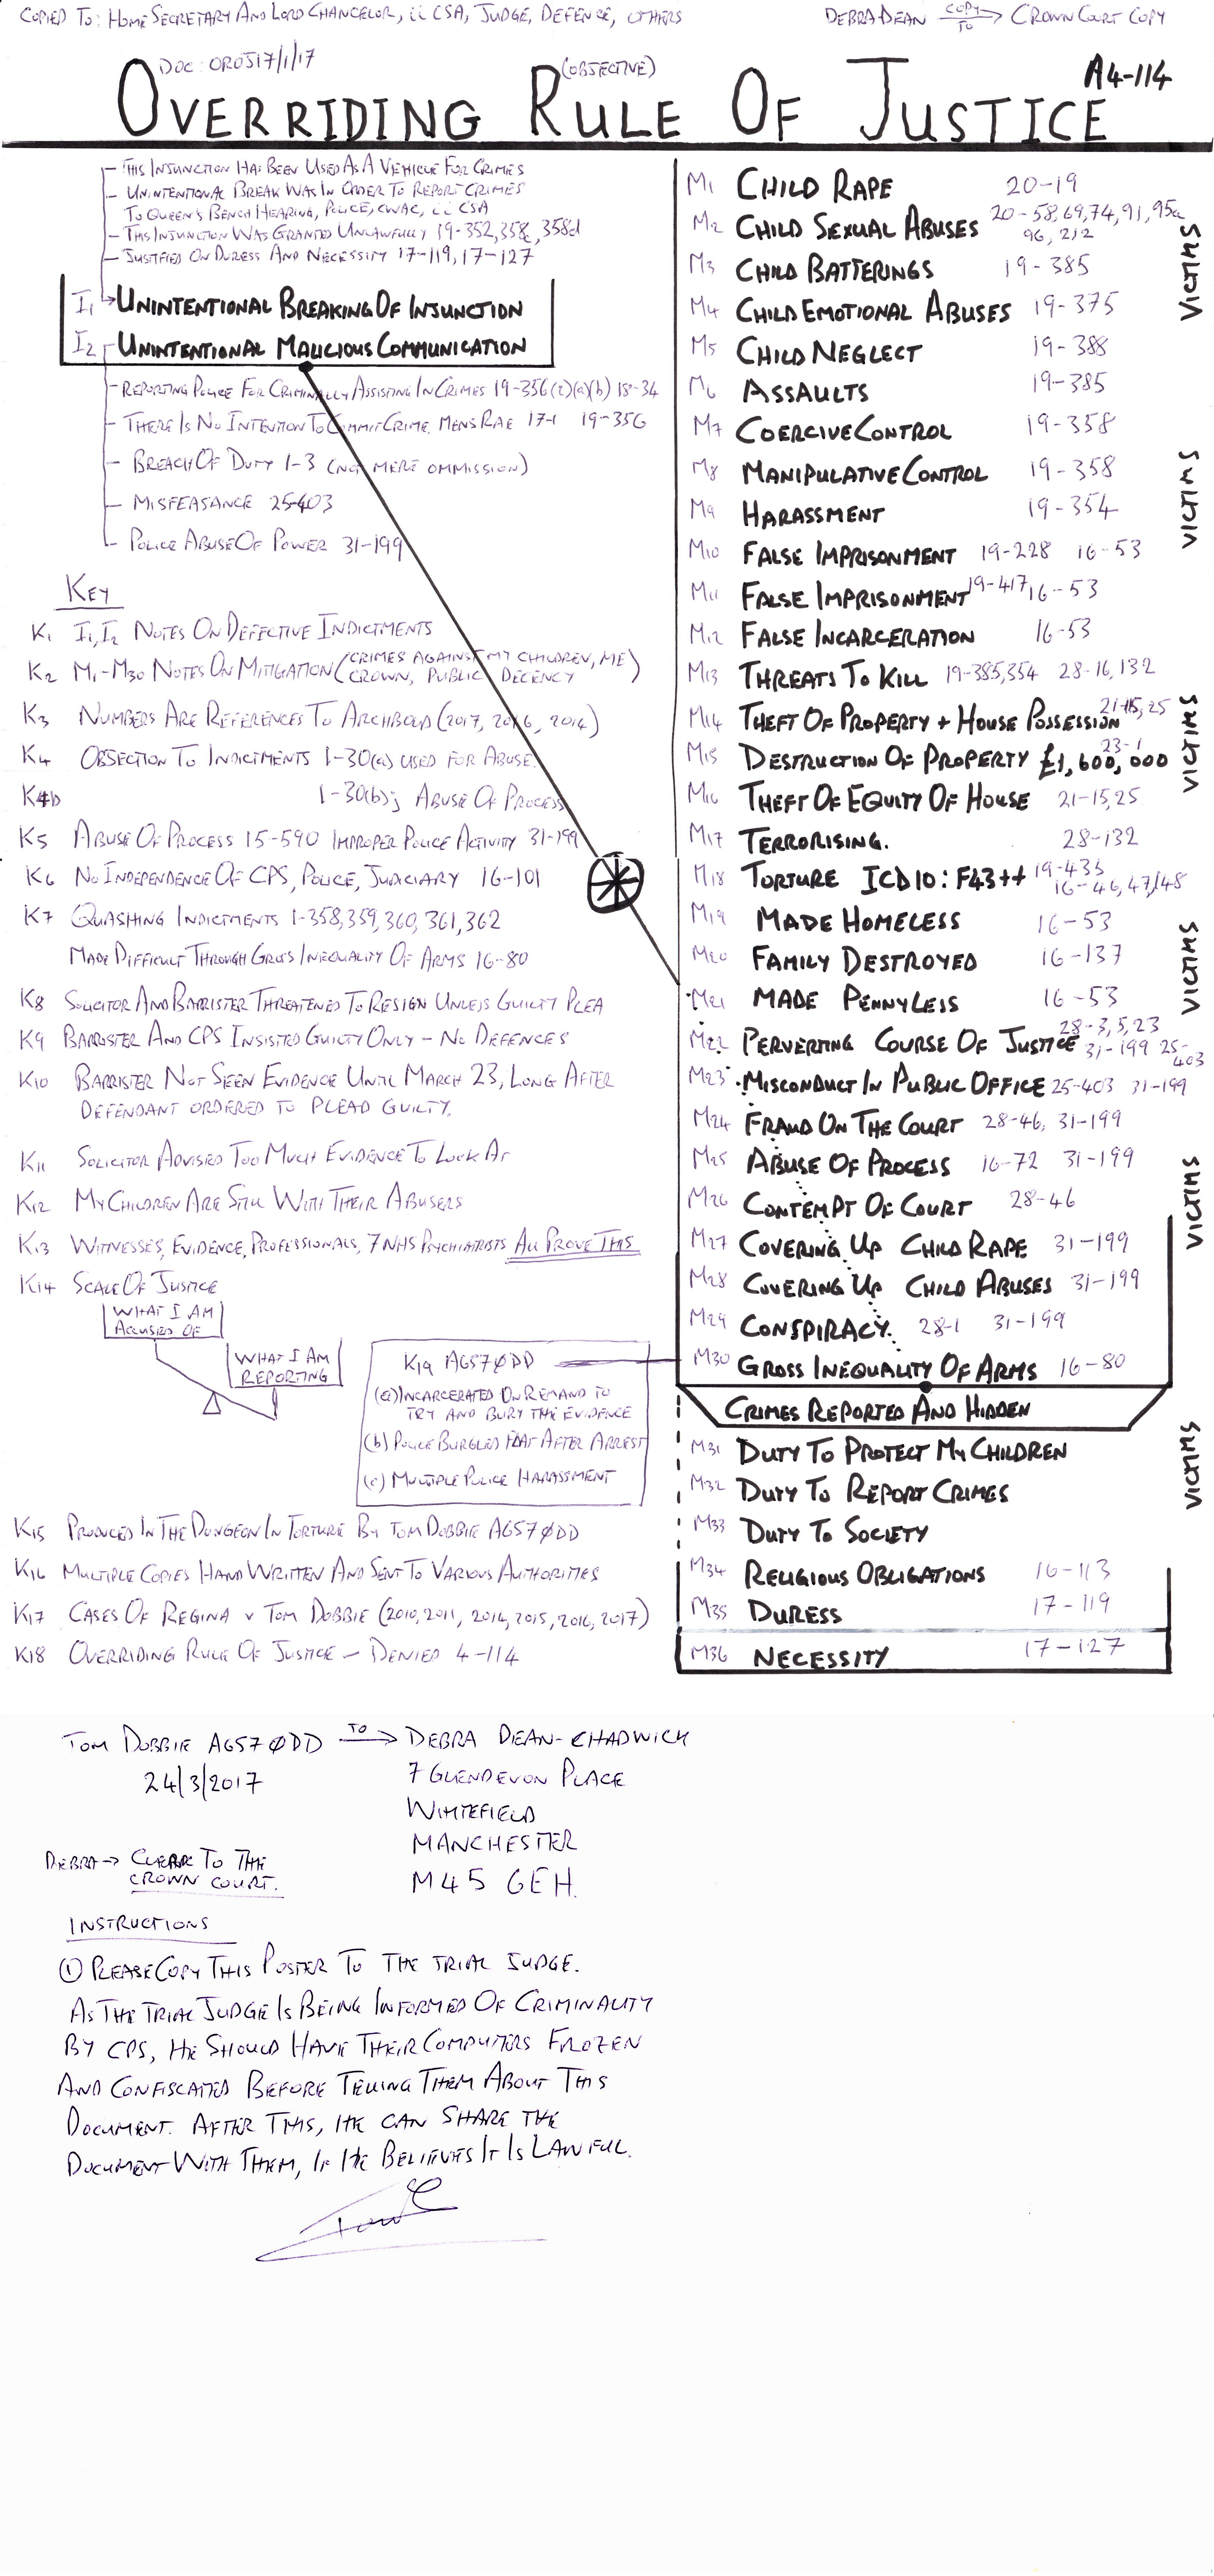 COPIED TO: HOME SECRETARY AND LORD CHANCELOR, iiCSA, JUDGE, DEFENCE, OTHERS
DEBRA DEAN COPY TO → CROWN COURT COPY
DOC: OROJ17/1/17
(OBJECTIVE)
A4-114
OVERRIDING RULE OF JUSTICE
THIS INJUNCTION HAS BEEN USED AS A VEHICLE FOR CRIMES
UNINTENTIONAL BREAK WAS IN ORDER TO REPORT CRIMES
TO QUEEN'S BENCH HEARING, POLICE, CWAC, iiCSA
THIS INJUNCTION WAS GRANTED UNLAWFULLY 19-352, 358c, 358d
JUSTIFIED ON DURESS AND NECESSITY 17-119, 17-127
I1 UNINTENTIONAL BREAKING OF INJUNCTION
I2 UNINTENTIONAL MALICIOUS COMMUNICATION
REPORTING POLICE FOR CRIMINALLY ASSISTING IN CRIMES 19-356(2)(a)(b) 18-34
THERE IS NO INTENTION TO COMMIT CRIME, MENS RAE 17-1 19-356
BREACH OF DUTY 1-3 (NOT MERE OMMISSION)
MISFEASANCE 25-403
POLICE ABUSE OF POWER 31-199
KEY
K1 I1, I2 NOTES ON DEFECTIVE INDICTMENTS
K2 M1-M30 NOTES ON MITIGATION (CRIMES AGAINST MY CHILDREN, ME, CROWN, PUBLIC DECENCY)
K3 NUMBERS ARE REFERENCES TO ARCHBOLD (2017, 2016, 2014)
K4 OBJECTION TO INDICTMENTS 1-30(a) USED FOR ABUSE.
K4b 1-30(b); ABUSE OF PROCESS
K5 ABUSE OF PROCESS 15-590 IMPROPER POLICE ACTIVITY 31-199
K6 NO INDEPENDENCE OF CPS, POLICE, JUDICIARY 16-101
K7 QUASHING INDICTMENTS 1-358, 359, 360, 361, 362
MADE DIFFICULT THROUGH GROSS INEQUALITY OF ARMS 16-80
K8 SOLICITOR AND BARRISTER THREATENED TO RESIGN UNLESS GUILTY PLEA
K9 BARRISTER AND CPS INSISTED GUILTY ONLY - NO DEFENCES
K10 BARRISTER NOT SEEN EVIDENCE UNTIL MARCH 23, LONG AFTER
DEFENDANT ORDERED TO PLEAD GUILTY.
K11 SOLICITOR ADVISED TOO MUCH EVIDENCE TO LOOK AT
K12 MY CHILDREN ARE STILL WITH THEIR ABUSERS
K13 WITNESSES, EVIDENCE, PROFESSIONALS, 7 NHS PSYCHIATRISTS ALL PROVE THIS
K14 SCALE OF JUSTICE
WHAT I AM
ACCUSED OF
WHAT I AM
REPORTING
K19 A6570DD
(a) INCARCERATED ON REMAND TO
TRY AND BURY THE EVIDENCE
(b) POLICE BURGLED FLAT AFTER ARREST
(c) MULTIPLE POLICE HARASSMENT
K15 PRODUCED IN THE DUNGEON IN TORTURE BY TOM DOBBIE A6570DD
K16 MULTIPLE COPIES HAND WRITTEN AND SENT TO VARIOUS AUTHORITIES
K17 CASES OF REGINA v TOM DOBBIE (2010, 2011, 2014, 2015, 2016, 2017)
K18 OVERRIDING RULE OF JUSTICE - DENIED 4-114
M1 CHILD RAPE 20-19
M2 CHILD SEXUAL ABUSES 20-58, 69, 74, 91, 95a
96, 212
M3 CHILD BATTERINGS 19-385
M4 CHILD EMOTIONAL ABUSES 19-375
M5 CHILD NEGLECT 19-388
M6 ASSAULTS 19-385
M7 COERCIVE CONTROL 19-358
M8 MANIPULATIVE CONTROL 19-358
M9 HARASSMENT 19-354
M10 FALSE IMPRISONMENT 19-228 16-53
M11 FALSE IMPRISONMENT 19-417, 16-53
M12 FALSE INCARCERATION 16-53
M13 THREATS TO KILL 19-385, 354 28-16, 132
M14 THEFT OF PROPERTY + HOUSE POSSESSION 21-15, 25
M15 DESTRUCTION OF PROPERTY £1,600,000 23-1
M16 THEFT OF EQUITY OF HOUSE 21-15, 25
M17 TERRORISING. 28-132
M18 TORTURE ICD10: F43++ 19-435
16-46, 47, 48
M19 MADE HOMELESS 16-53
M20 FAMILY DESTROYED 16-137
M21 MADE PENNYLESS 16-53
M22 PERVERTING COURSE OF JUSTICE 28-3, 5, 23
31-199 25-403
M23 MISCONDUCT IN PUBLIC OFFICE 25-403 31-199
M24 FRAUD ON THE COURT 28-46, 31-199
M25 ABUSE OF PROCESS 16-72 31-199
M26 CONTEMPT OF COURT 28-46
M27 COVERING UP CHILD RAPE 31-199
M28 COVERING UP CHILD ABUSES 31-199
M29 CONSPIRACY. 28-1 31-199
M30 GROSS INEQUALITY OF ARMS 16-80
CRIMES REPORTED AND HIDDEN
M31 DUTY TO PROTECT MY CHILDREN
M32 DUTY TO REPORT CRIMES
M33 DUTY TO SOCIETY
M34 RELIGIOUS OBLIGATIONS 16-113
M35 DURESS 17-119
M36 NECESSITY 17-127
VICTIMS
VICTIMS
VICTIMS
VICTIMS
VICTIMS
VICTIMS
TOM DOBBIE A6570DD TO → DEBRA DEAN-CHADWICK
24/3/2017
7 GLENDEVON PLACE
WHITEFIELD
MANCHESTER
M45 6EH.
DEBRA → CLERK TO THE
CROWN COURT.
INSTRUCTIONS
① PLEASE COPY THIS POSTER TO THE TRIAL JUDGE.
AS THE TRIAL JUDGE IS BEING INFORMED OF CRIMINALITY
BY CPS, HE SHOULD HAVE THEIR COMPUTERS FROZEN
AND CONFISCATED BEFORE TELLING THEM ABOUT THIS
DOCUMENT. AFTER THIS, HE CAN SHARE THE
DOCUMENT WITH THEM, IF HE BELIEVES IT IS LAWFUL.